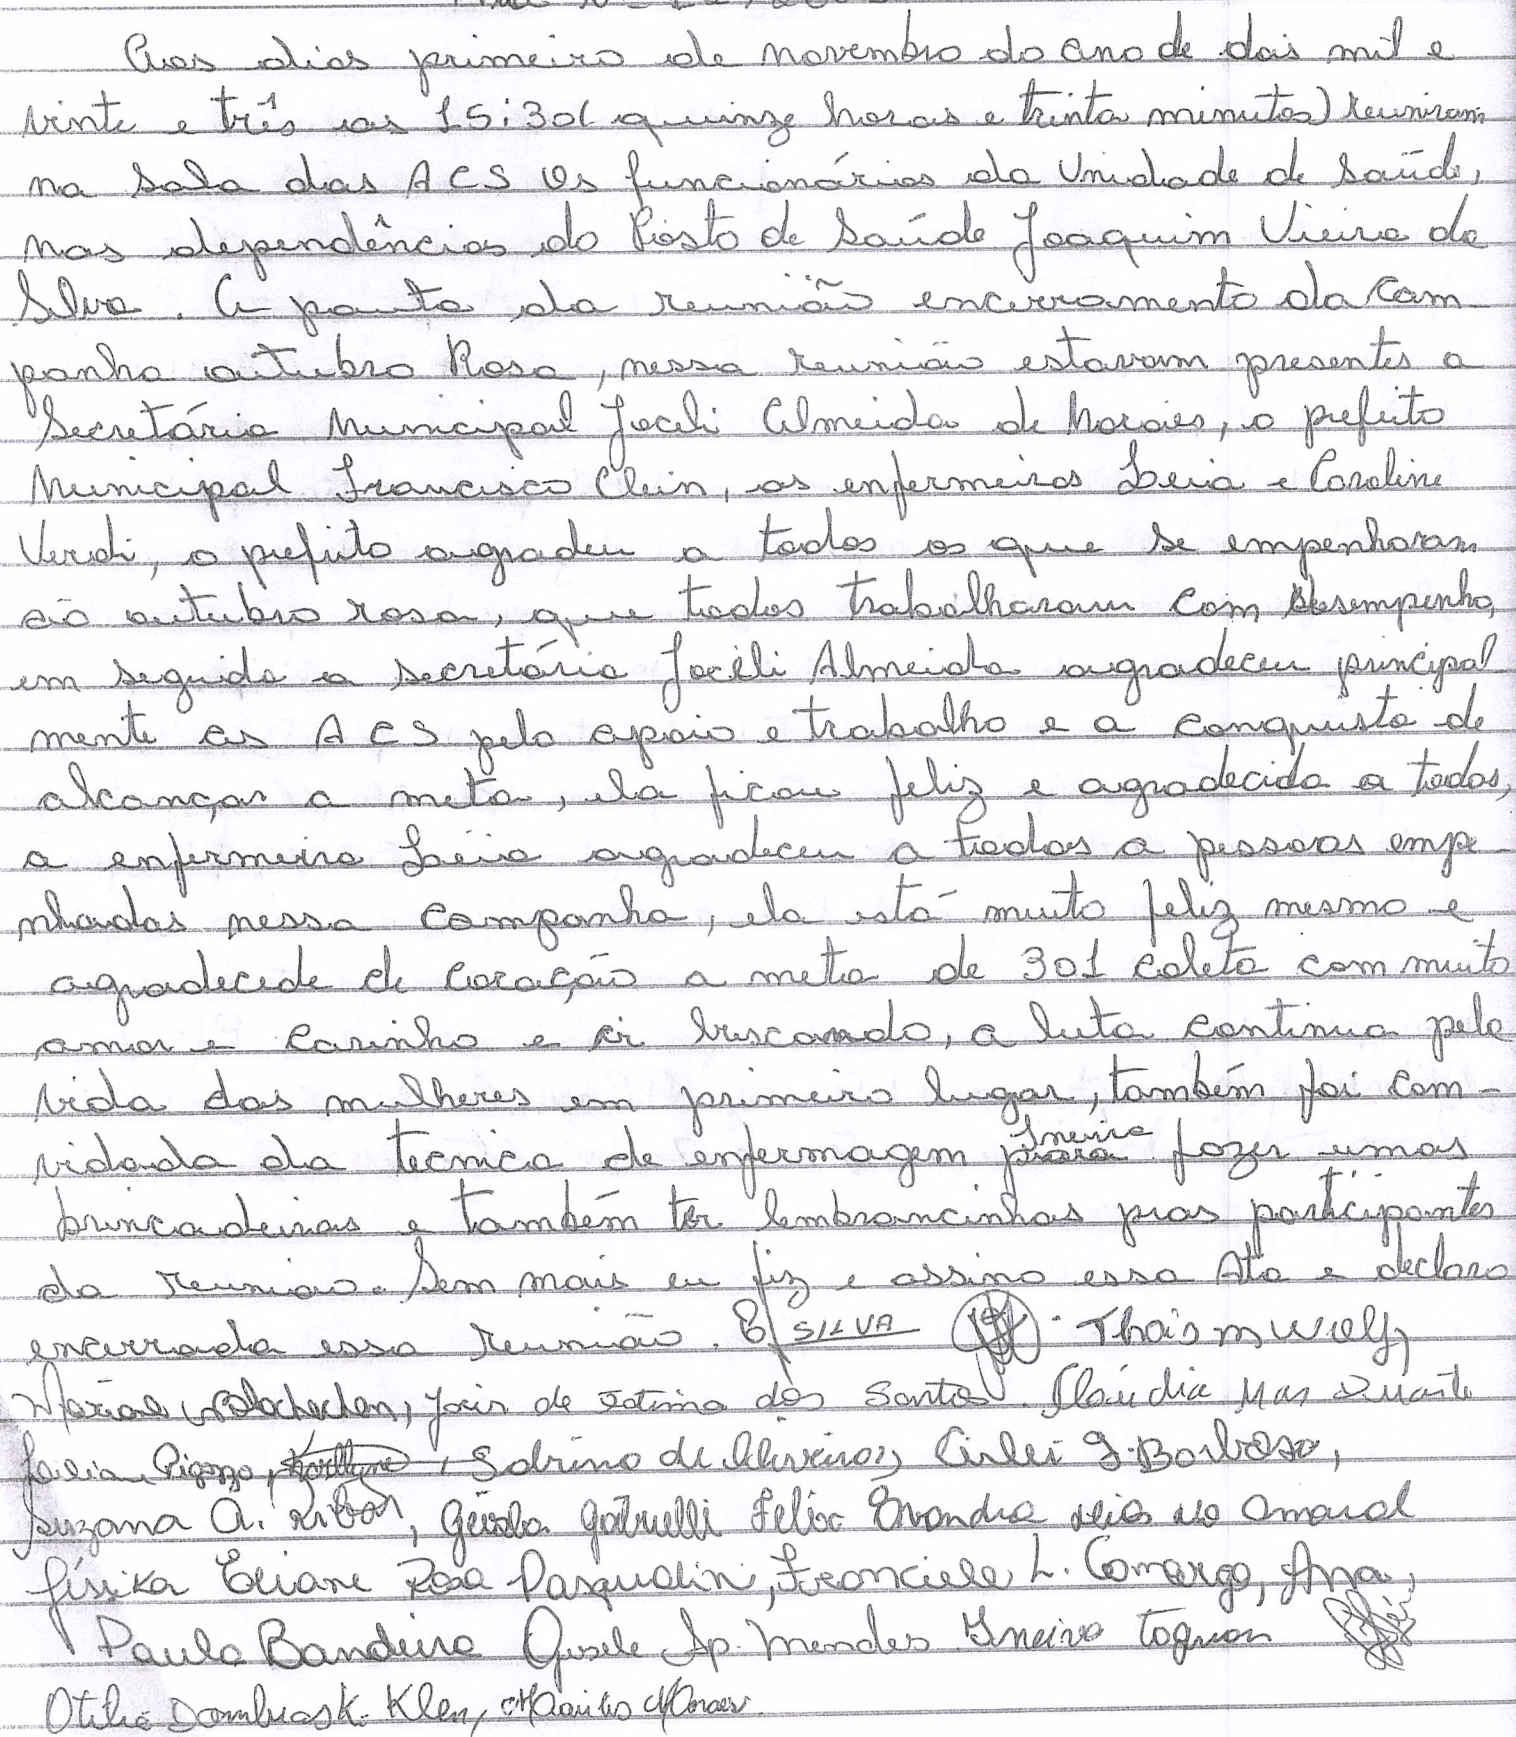 Aos dias primeiro de novembro do ano de dois mil e
vinte e três as 15:30( quinze horas e trinta minutos) reuniram
na sala das ACS os funcionários da Unidade de Saúde,
nas dependências do Posto de Saúde Joaquim Vieira da
Silva. A pauta da reunião encerramento da Cam
panha outubro Rosa, nessa reunião estavam presentes a
Secretária Municipal Joceli Almeida de Moraes, o prefeito
Municipal Francisco Clein, as enfermeiras Leia e Caroline
Verdi, o prefeito agradeu a todos os que se empenharam
ao outubro rosa, que todos trabalharam com desempenho,
em seguida a secretária Joceli Almeida agradeceu principal
mente as ACS pelo apoio e trabalho e a conquista de
alcançar a meta, ela ficou feliz e agradecida a todos,
a enfermeira Leia agradeceu a todas a pessoas empe
nhadas nessa campanha, ela está muito feliz mesmo e
agradecede de coração a meta de 301 coleta com muito
amor e carinho e ir buscando, a luta continua pela
vida das mulheres em primeiro lugar, também foi com-
vidada da tecnica de enfermagem Ineiva para fazer umas
brincadeiras e também ter lembrancinhas pras participantes
da reunião. Sem mais eu fiz e assino essa Ata e declaro
encerrada essa reunião. SILVA Thais M Wolf
de Fatima dos Santos. Claudia Mas Duarte
de Oliveira, Cirlei S. Barbosa,
Suzana A. Ribas, Gabrielli Felix Evandra do Amaral
Géssika Eliane Rosa Pasqualin, Franciele L. Camargo, Ana,
Paula Bandeira Gisele Ap. Mendes Ineiva Tognon
Klen, Moraes